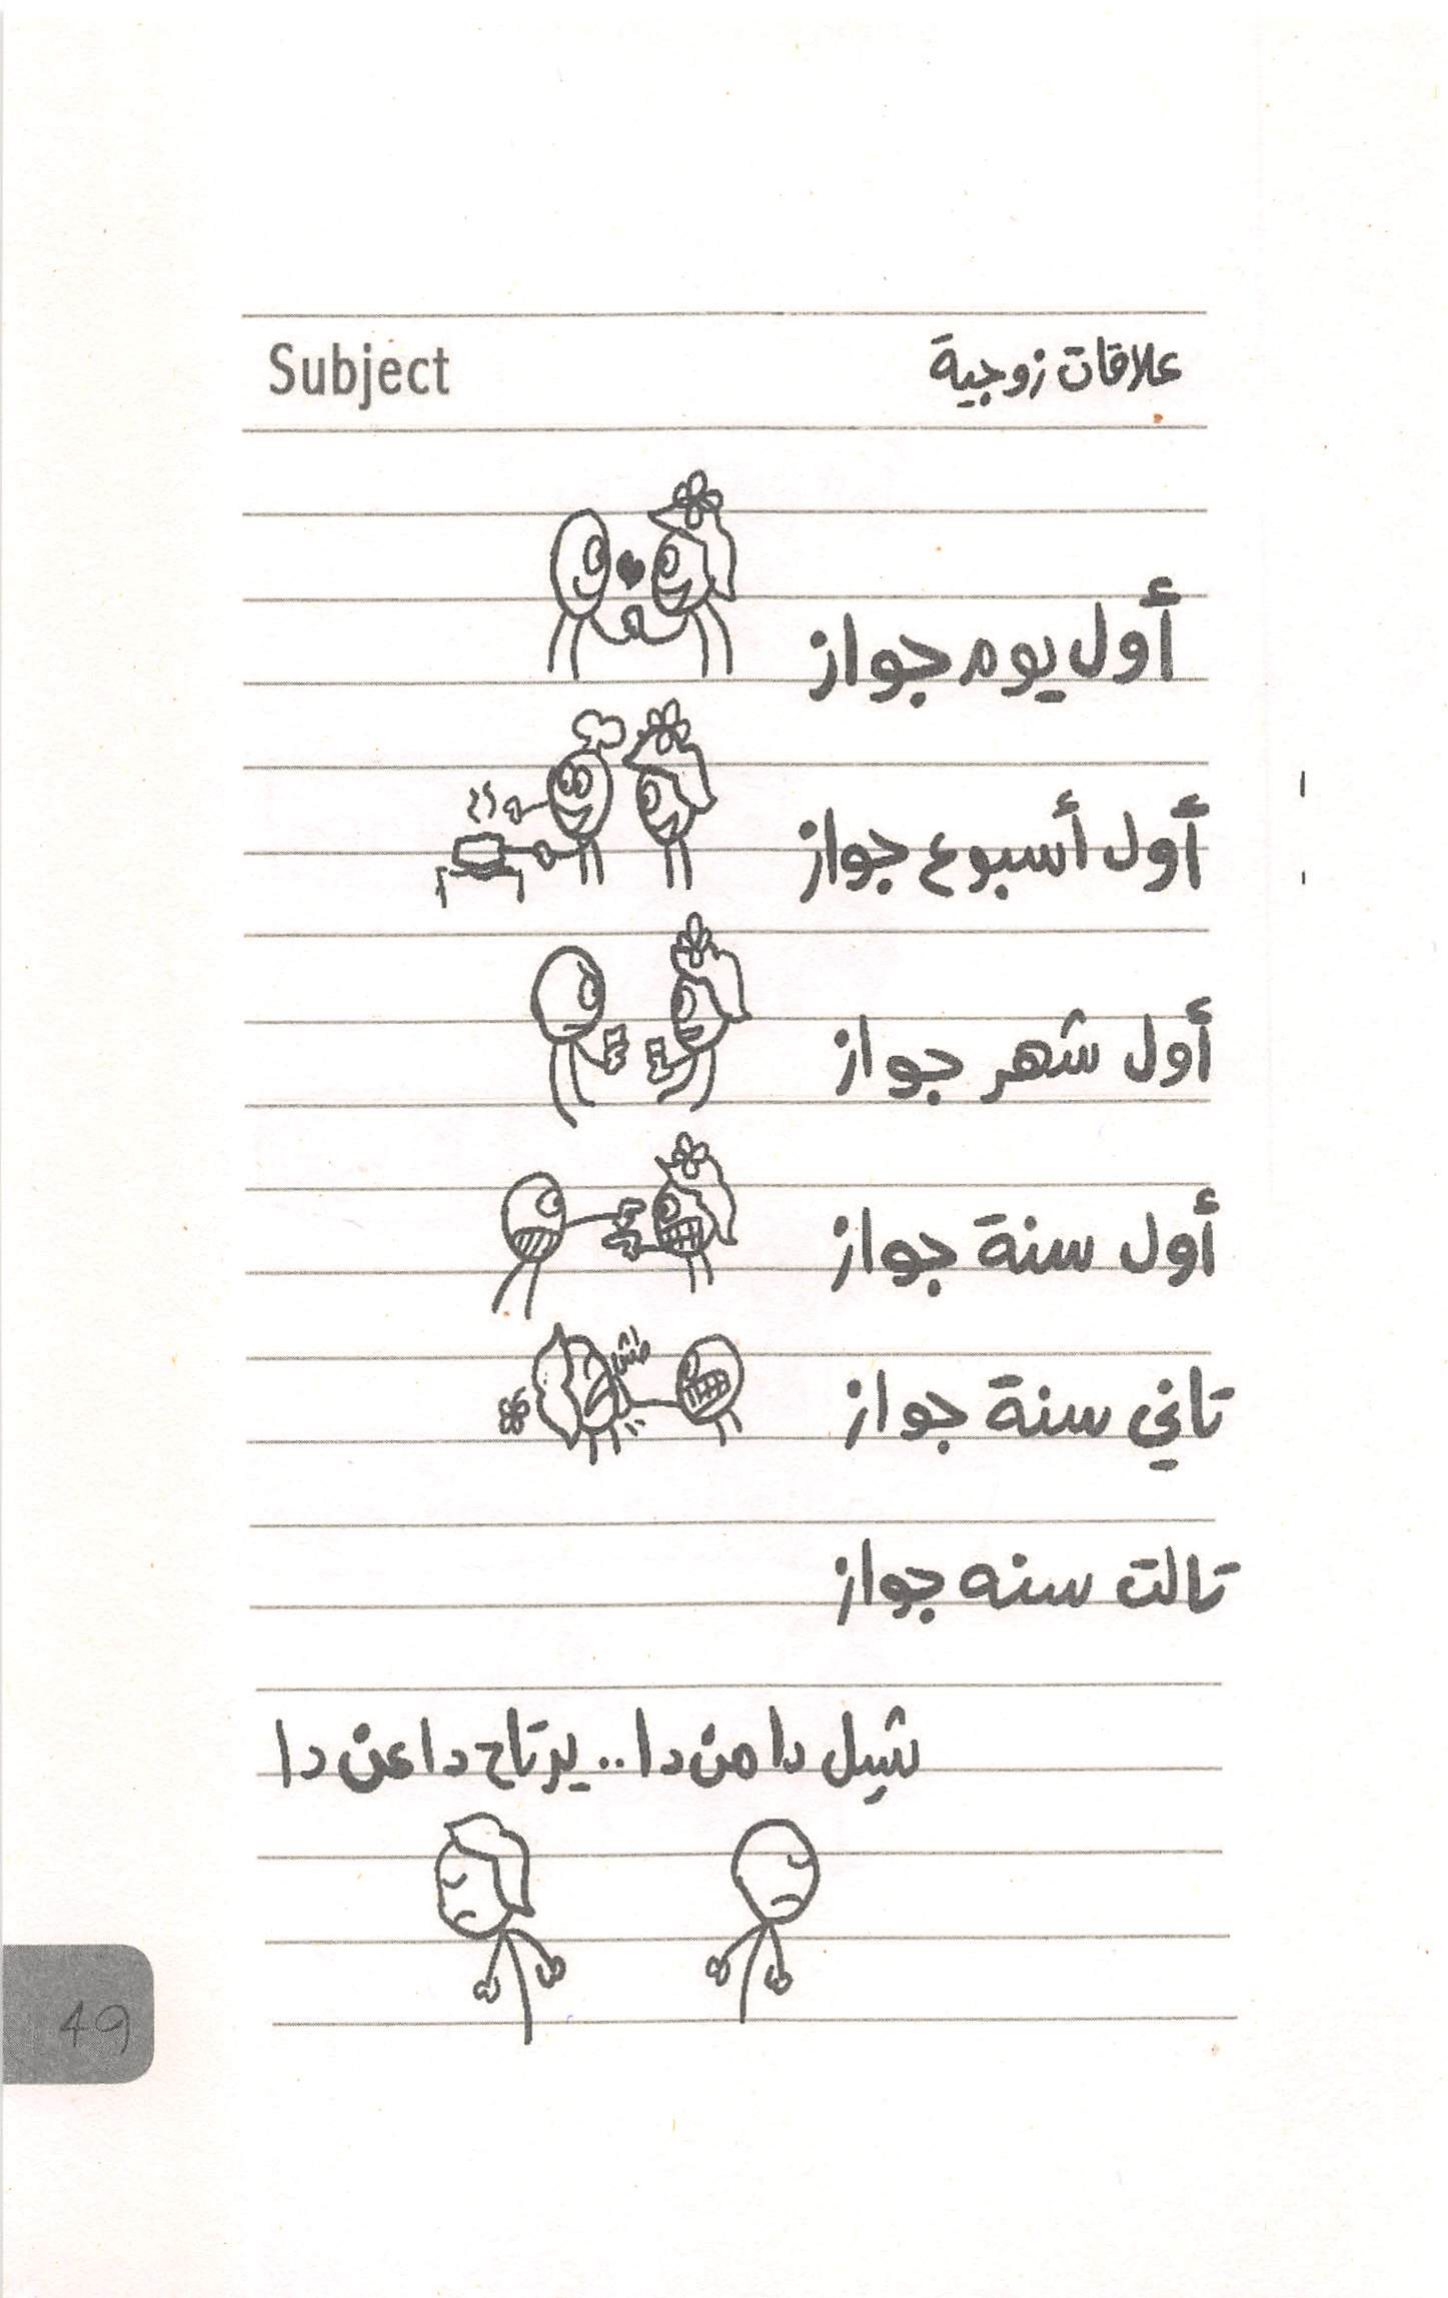 Subject علاقات زوجية
أول يوم جواز
أول أسبوع جواز
أول شهر جواز
أول سنة جواز
طش
تاني سنة جواز
تالت سنه جواز
شيل دا من دا .. يرتاح دا عن دا
49